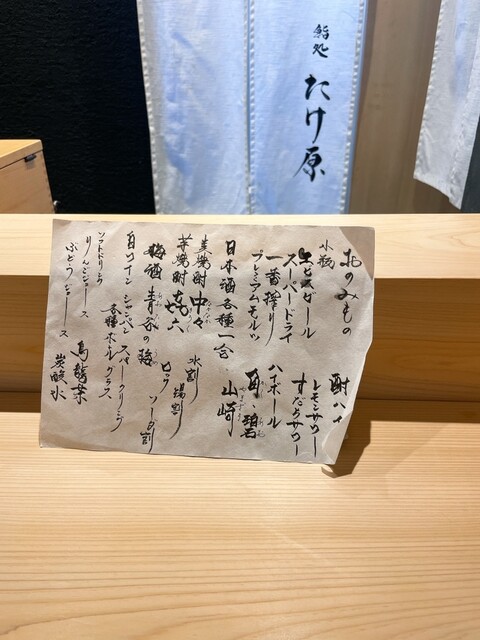 鮨処
たけ原
おのみもの
小瓶
生ビール
スーパードライ
一番搾り
プレミアムモルツ
酎ハイ
レモンサワー
すだちサワー
ハイボール
角、碧
あお
山崎
やまざき
日本酒各種一合、
麦焼酎 中々
芋焼酎 㐂六
水割
湯割
ロック
ソーダ割
梅酒 青谷の梅
白ワイン シャンパン スパークリング
各種ボトル グラス
ソフトドリンク
りんごジュース
ぶどうジュース
烏龍茶
炭酸水